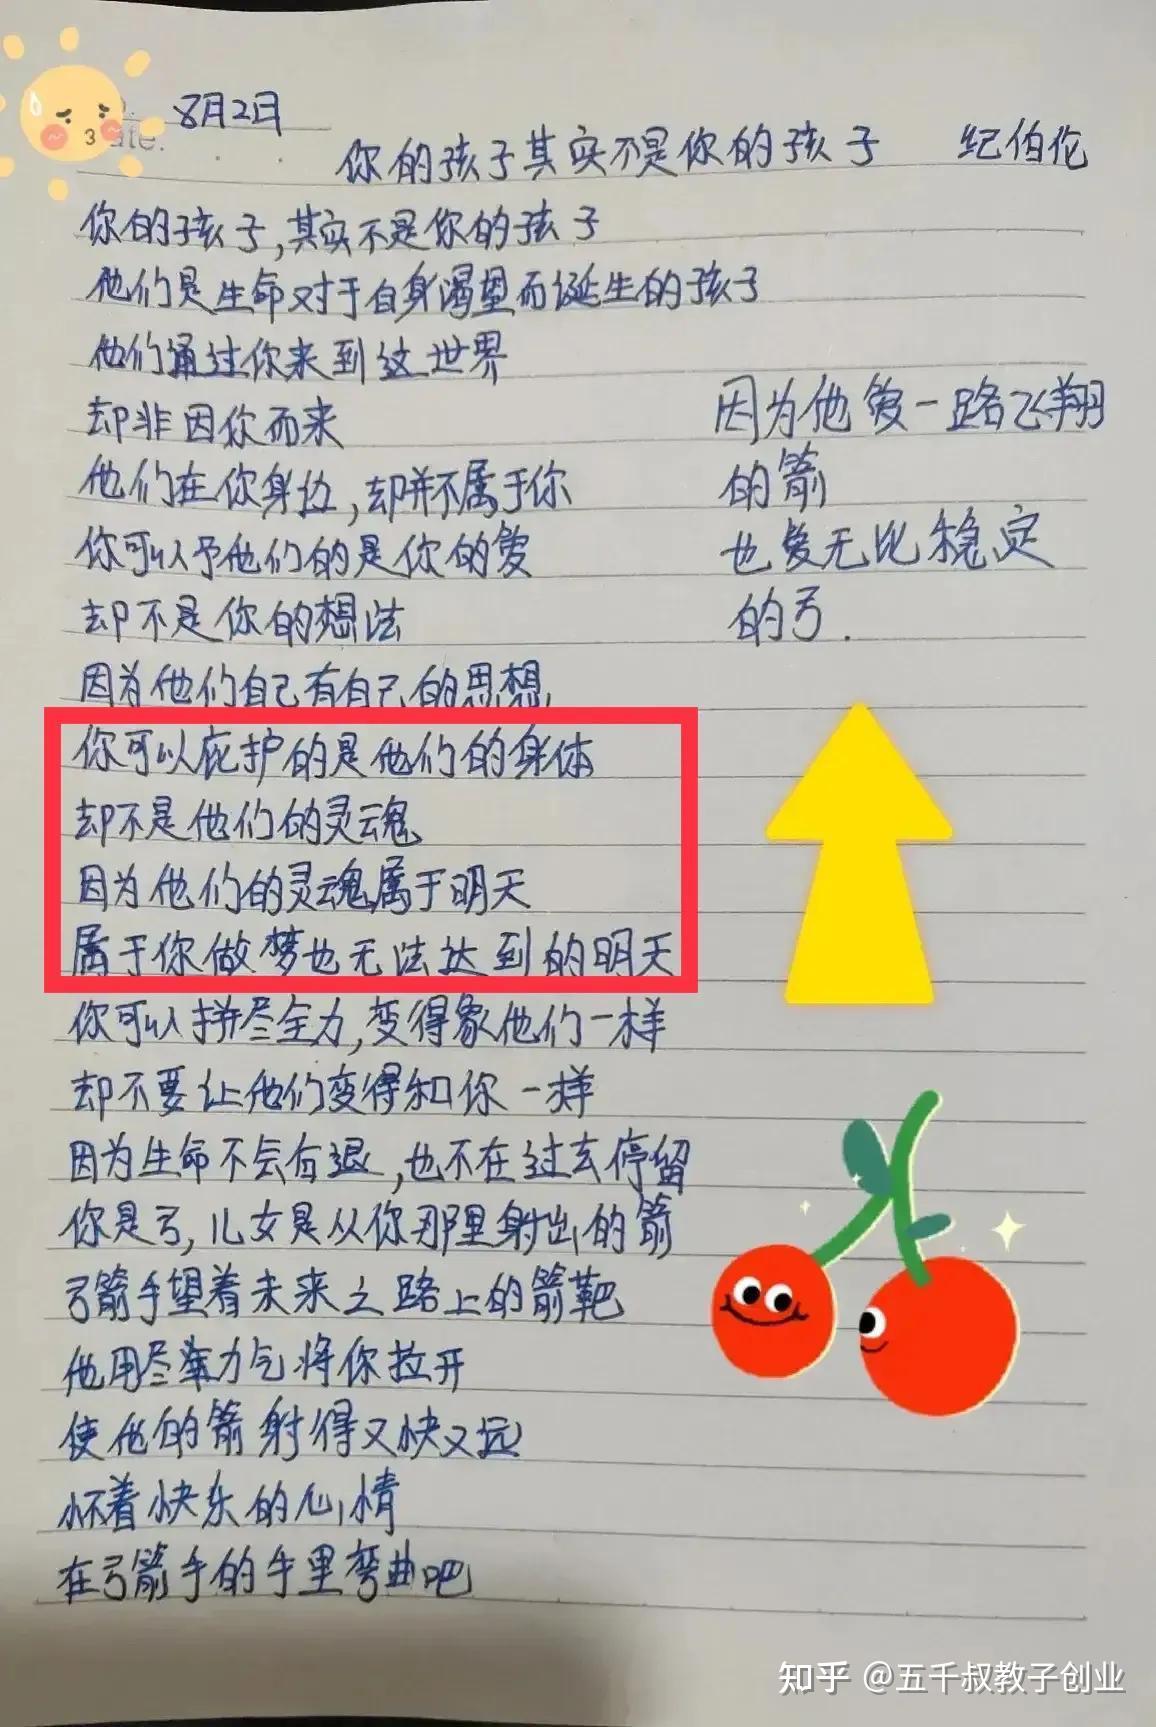 8月2日
你的孩子其实不是你的孩子 纪伯伦
你的孩子,其实不是你的孩子
他们是生命对于自身渴望而诞生的孩子
他们通过你来到这世界
却非因你而来
他们在你身边,却并不属于你
你可以予他们的是你的爱
却不是你的想法
因为他们自己有自己的思想,
你可以庇护的是他们的身体
却不是他们的灵魂
因为他们的灵魂属于明天
属于你做梦也无法达到的明天
你可以拼尽全力,变得象他们一样
却不要让他们变得和你一样
因为生命不会后退,也不在过去停留
你是弓,儿女是从你那里射出的箭
弓箭手望着未来之路上的箭靶
他用尽力气将你拉开
使他的箭射得又快又远
怀着快乐的心情
在弓箭手的手里弯曲吧
因为他爱一路飞翔
的箭
也爱无比稳定
的弓.
知乎 @五千叔教子创业